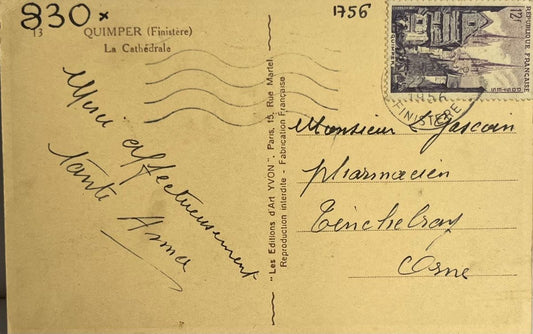 830x
1756
13 QUIMPER (Finistère)
La Cathédrale
12F
REPUBLIQUE FRANÇAISE
POSTES
QUIMPER
1956
FINISTERE
Mimi affectueusement
tante Anna
"Les Editions d'Art YVON", Paris, 15, Rue Martel
Reproduction interdite - Fabrication Française
Monsieur Gascoin
pharmacien
Tinchebray
Orne